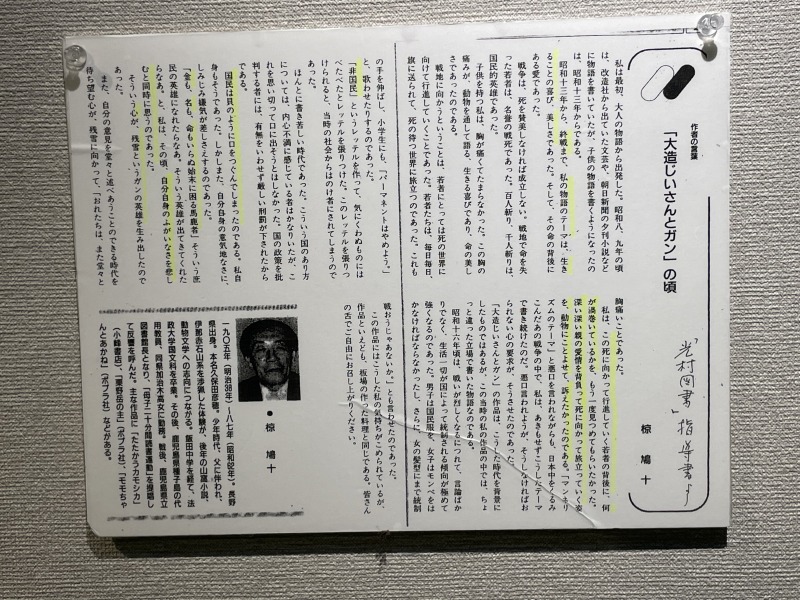 作者の言葉
「大造じいさんとガン」の頃
「光村図書」指導書より
椋 鳩十
私は最初、大人の物語から出発した。昭和八、九年の頃
は、改造社から出ていた文芸や、朝日新聞の夕刊小説など
に物語を書いていたが、子供の物語を書くようになったの
は、昭和十三年からである。
昭和十三年から、終戦まで、私の物語のテーマは、生き
ることの喜び、美しさであった。そして、その命の背後に
ある愛であった。
戦争は、死を賛美しなければ成立しない。戦地で命を失
った若者は、名誉の戦死であった。百人斬り、千人斬りは、
国民的英雄であった。
子供を持つ私は、胸が痛くてたまらなかった。この胸の
痛みが、動物を通して語る、生きる喜びであり、命の美し
さであったのである。
戦地に向かうということは、若者にとっては死の世界に
向けて行進していくことであった。若者たちは、毎日毎日、
旗に送られて、死の待つ世界に旅立つのであった。これも
胸痛いことであった。
私は、この死に向かって行進していく若者の背後に、何
が渦巻いているかを、もう一度見つめてもらいたかった。
深い深い親の愛情を背負って死に向かって旅立っていく姿
を、動物にことよせて、訴えたかったのである。「マンネリ
ズムのテーマ」と悪口を言われながらも、日本中をくるみ
こんだあの戦争の中で、私は、あきもせずこうしたテーマ
で書き続けたのだ。悪口言われようが、そうしなければお
られない心の要求が、そうさせたのであった。
「大造じいさんとガン」の作品は、こうした時代を背景に
したものではあるが、この当時の私の作品の中では、ちょ
っと違った立場で書いた物語なのである。
昭和十六年頃は、戦いが烈しくなるにつれて、言論ばか
りでなく、生活一切が国によって統制される傾向が極めて
強くなるのであった。男子は国民服を、女子はモンペをは
かなければならなかったし、さらに、女の髪型にまで統制
の手を伸ばし、小学生にも、「パーマネントはやめよう。」
と、歌わせたりするのであった。
「非国民」というレッテルを作って、気にくわぬものには
べたべたとレッテルを張りつけた。このレッテルを張りつ
けられると、当時の社会からはのけ者にされてしまうので
あった。
ほんとに書き苦しい時代であった。こういう国のあり方
については、内心不満に感じている者はかなりいたが、こ
れを思い切って口に出そうとはしなかった。国の政策を批
判する者には、有無をいわせず厳しい刑罰が下されたから
である。
国民は貝のように口をつぐんでしまったのである。私自
身もそうであった。しかしまた、自分自身の意気地なさに、
しみじみ嫌気が差しさえするのであった。
「金も、名も、命もいらぬ始末に困る馬鹿者」そういう庶
民の英雄になれたらなあ。そういう英雄が出てきてくれた
らなあ。と、私は、その頃、自分自身のふがいなさを悲し
むと同時に思うのであった。
そういう心が、残雪というガンの英雄を生み出したので
あった。
また、自分の意見を堂々と述べあうことのできる時代を
待ち望む心が、残雪に向かって、「おれたちは、また堂々と
戦おうじゃあないか。」とも言えたのであった。
この作品にはこうした私の気持ちがこめられているが、
作品といえども、板場の作った料理と同じである。皆さん
の舌でご自由にお召し上がりください。
●椋 鳩十
一九〇五年（明治38年）―八七年（昭和62年）。長野
県出身。本名久保田彦穂。少年時代、父に伴われ、
伊那赤石山系を渉猟した体験が、後年の山窩小説、
動物文学への志向につながる。飯田中学を経て、法
政大学国文科を卒業。その後、鹿児島県種子島の代
用教員、同県加治木高女に勤務。戦後、鹿児島県立
図書館長となり、「母子二十分間読書運動」を提唱し
て反響を呼んだ。主な作品に「たたかうカモシカ」
（小峰書店）、「栗野岳の主」（ポプラ社）、「モモちゃ
んとあかね」（ポプラ社）などがある。